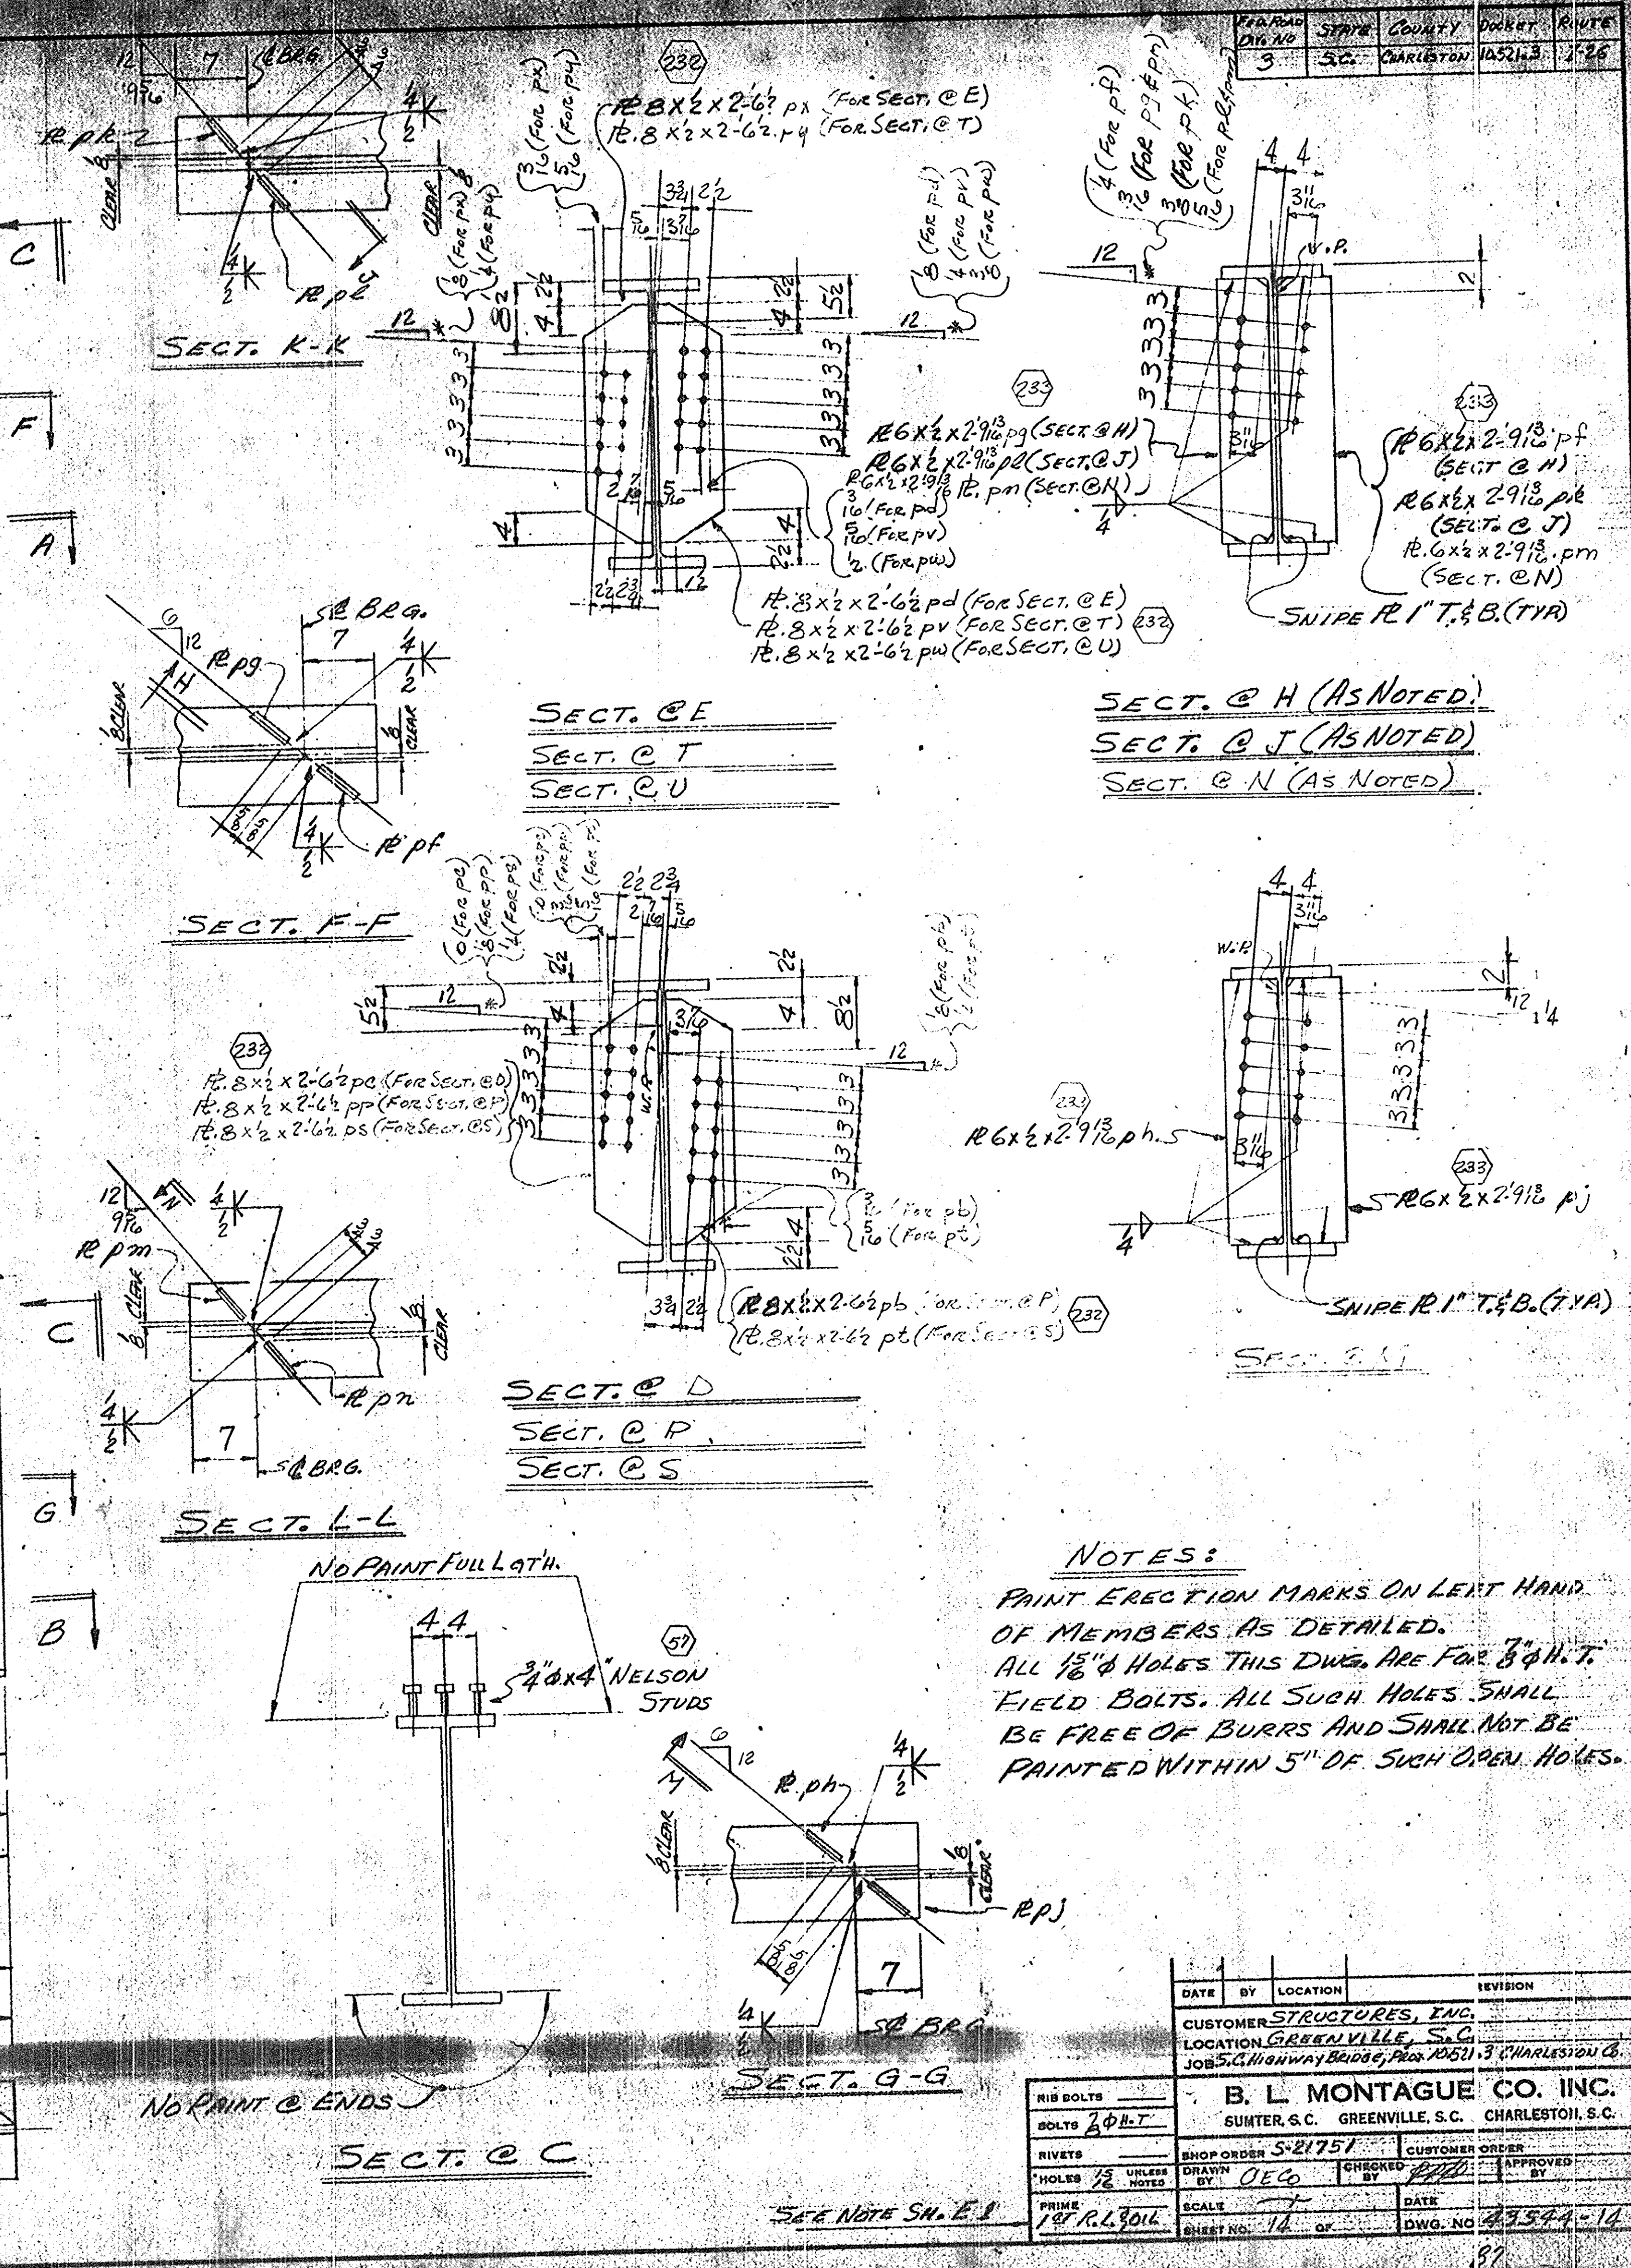 FED. ROAD DIV. NO STATE COUNTY DOCKET ROUTE
3 S.C. CHARLESTON 10.521.3 I-26
12
7
℄ BRG.
9 5/16
PL pk
1/8 CLEAR
1/4
1/2
CLEAR 1/8
1/4
1/2
PL pl
J
SECT. K-K
C
F
A
232
PL 8 x 1/2 x 2-6 1/2 px (FOR SECT. @ E)
PL. 8 x 1/2 x 2-6 1/2 py (FOR SECT. @ T)
3/16 (FOR px)
5/16 (FOR py)
1/8 (FOR px)
1/4 (FOR py)
12 *
3 3/4 2 1/2
5/16 3 7/16
8 1/2
4 2 1/2
4 2 1/2
5 1/2
3 3 3 3 3
3 3 3 3 3
1/8 (FOR pd)
1/4 (FOR pv)
3/8 (FOR pw)
12 *
2 7/16 5/16
4
2 1/2 4
2 1/2 2 3/4
1 2
3/16 (FOR pd)
5/16 (FOR pv)
1/2 (FOR pw)
PL. 8 x 1/2 x 2-6 1/2 pd (FOR SECT. @ E)
PL. 8 x 1/2 x 2-6 1/2 pv (FOR SECT. @ T)
232
PL. 8 x 1/2 x 2-6 1/2 pw (FOR SECT. @ U)
SECT. @ E
SECT. @ T
SECT. @ U
1/4 (FOR pf)
3/16 (FOR pg & pm)
3/8 (FOR pk)
12 *
4 4
3 11/16
W.P.
2
3 3 3 3 3
233
PL 6 x 1/2 x 2-9 13/16 pg (SECT. @ H)
PL 6 x 1/2 x 2-9 13/16 pl (SECT. @ J)
PL 6 x 1/2 x 2-9 13/16 PL. pn (SECT. @ N)
3 11/16
1/4
233
PL 6 x 1/2 x 2-9 13/16 pf
(SECT @ H)
PL 6 x 1/2 x 2-9 13/16 pk
(SECT. @ J)
PL. 6 x 1/2 x 2-9 13/16 pm
(SECT. @ N)
SNIPE PL 1" T. & B. (TYP.)
SECT. @ H (AS NOTED)
SECT. @ J (AS NOTED)
SECT. @ N (AS NOTED)
6
12
℄ BRG.
7
PL pg
H
1/4
1/2
1/8 CLEAR
1/8 CLEAR
5/8 5/8
1/4
1/2
PL pf
SECT. F-F
0 (FOR pc)
1/8 (FOR pp)
1/4 (FOR ps)
2 1/2 2 3/4
2 7/16 5/16
5 1/2
12 *
2 1/2
4
3 7/16
2 1/2
4
8 1/2
12 *
W.P.
3 3 3 3 3
3 3 3 3 3
232
PL. 8 x 1/2 x 2-6 1/2 pc (FOR SECT. @ D)
PL. 8 x 1/2 x 2-6 1/2 pp (FOR SECT. @ P)
PL. 8 x 1/2 x 2-6 1/2 ps (FOR SECT. @ S)
3/16 (FOR pb)
5/16 (FOR pt)
2 1/2 4
3 3/4 2 1/2
PL 8 x 1/2 x 2-6 1/2 pb
PL. 8 x 1/2 x 2-6 1/2 pt (FOR SECT. @ S)
232
SECT. @ D
SECT. @ P
SECT. @ S
4 4
3 11/16
W.P.
2
12 1/4
3 3 3 3 3
233
PL 6 x 1/2 x 2-9 13/16 ph
3 11/16
1/4
233
PL 6 x 1/2 x 2-9 13/16 pj
SNIPE PL 1" T. & B. (TYP.)
12
9 5/16
N
1/4
1/2
PL pm
1/8 CLEAR
1/8 CLEAR
C
1/4
1/2
PL pn
7
℄ BRG.
SECT. L-L
G
B
NO PAINT FULL LGTH.
4 4
57
3/4" Ø x 4" NELSON
STUDS
NO PAINT @ ENDS
SECT. @ C
6
12
M
PL ph
1/4
1/2
1/8 CLEAR
1/8 CLEAR
5/8 5/8
PL pj
7
1/4
1/2
℄ BRG.
SECT. G-G
NOTES:
PAINT ERECTION MARKS ON LEFT HAND
OF MEMBERS AS DETAILED.
ALL 15/16" Ø HOLES THIS DWG. ARE FOR 7/8" Ø H.T.
FIELD BOLTS. ALL SUCH HOLES SHALL
BE FREE OF BURRS AND SHALL NOT BE
PAINTED WITHIN 5" OF SUCH OPEN HOLES.
DATE BY LOCATION REVISION
CUSTOMER STRUCTURES, INC.
LOCATION GREENVILLE, S.C.
JOB S.C. HIGHWAY BRIDGE, PROJ. 10521.3 CHARLESTON CO.
B. L. MONTAGUE CO. INC.
SUMTER, S. C. GREENVILLE, S.C. CHARLESTON, S.C.
RIB BOLTS
BOLTS 7/8 Ø H.T.
RIVETS
HOLES 15/16 UNLESS NOTED
PRIME
SHOP ORDER S-21751 CUSTOMER ORDER
DRAWN BY CHECKED BY APPROVED BY
SCALE DATE
SHEET NO. 14 OF DWG. NO 43544-14
SEE NOTE SH. E1